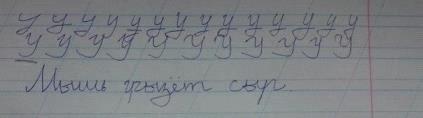 у у у у у у у у у у у у у у
У У У У У У У У У У У
Мышь грызёт сыр.